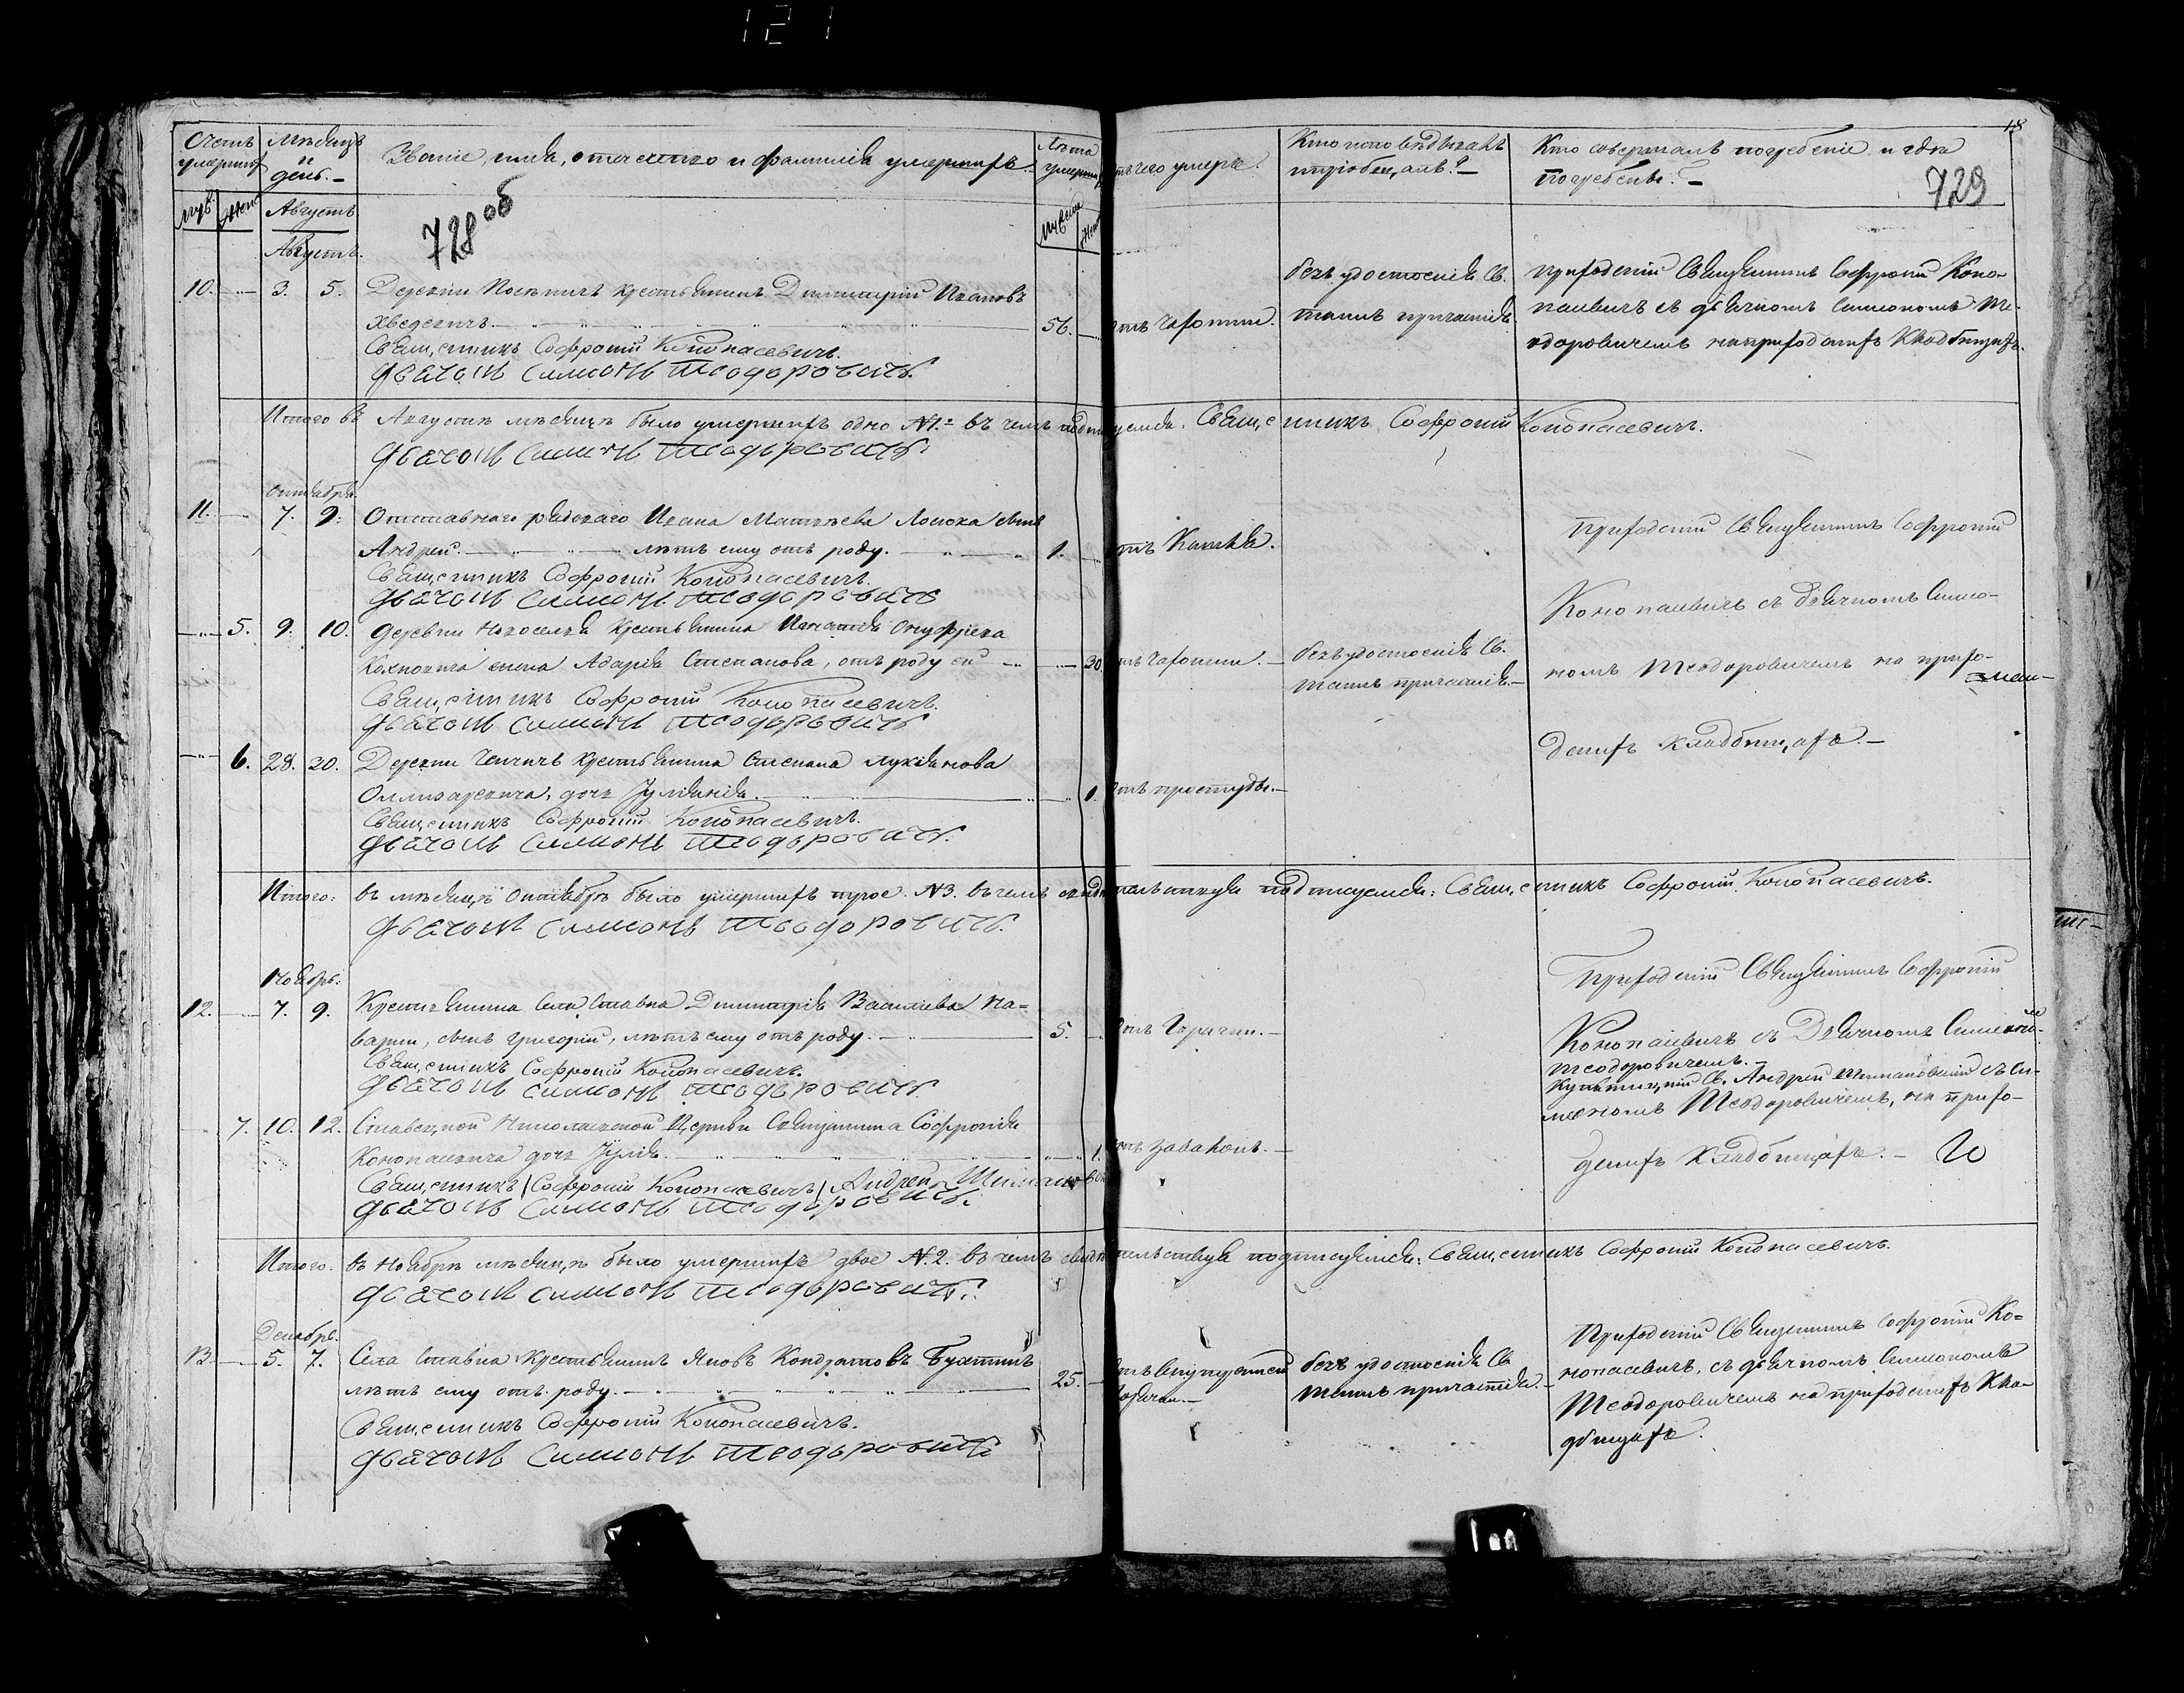 121
Счетъ умершихъ
Мѣсяцъ и день.
Званіе, имя, отечество и фамилія умершихъ.
Лѣта умершихъ
отъ чего умеръ.
Кто исповѣдывалъ и пріобщалъ?
Кто совершалъ погребеніе и гдѣ погребены?
18
729
728 об
Муж. Жен.
Августъ
Муж. Жен.
Августъ.
10. 3. 5. Деревни крестьянинъ Димитрій Ивановъ
Хведевичъ 56.
Священникъ Софроній Конопасевичъ.
Дьячокъ Симонъ Теодоровичъ.
отъ чахотки.
безъ удостоенія Св.
таинъ причастія.
Приходскій Священникъ Софроній Коно-
пасевичъ съ дьячкомъ Симономъ Те-
одоровичемъ на приходскихъ кладбищахъ.
Итого въ Августѣ мѣсяцѣ было умершихъ одно №1. въ чемъ подписуемся. Священникъ Софроній Конопасевичъ.
Дьячокъ Симонъ Теодоровичъ.
Октябрь.
11. 7. 9. Отставнаго рядоваго Ивана Матвѣева сынъ
Андрей. лѣтъ ему отъ роду. 1.
Священникъ Софроній Конопасевичъ.
Дьячокъ Симонъ Теодоровичъ
отъ Кашля.
Приходскій Священникъ Софроній
Конопасевичъ съ дьячкомъ Симо-
номъ Теодоровичемъ на прихо-
дскихъ кладбищахъ.
5. 9. 10. Деревни Новоселка крестьянина Игнатія Онуфріева
жена Адарія Степанова, отъ роду ей 30.
Священникъ Софроній Конопасевичъ.
Дьячокъ Симонъ Теодоровичъ
отъ чахотки.
безъ удостоенія Св.
таинъ причастія.
6. 28. 30. Деревни крестьянина Степана Лукьянова
Оллизаревича, дочь Іуліянія. 1.
Священникъ Софроній Конопасевичъ.
Дьячокъ Симонъ Теодоровичъ.
отъ простуды.
Итого: въ мѣсяцѣ Октябрѣ было умершихъ трое №3. въ чемъ свидѣтельствуя подписуемся: Священникъ Софроній Конопасевичъ.
Дьячокъ Симонъ Теодоровичъ.
Ноябрь.
12. 7. 9. Крестьянина Села Ставка Димитрія Василіева На-
варки, сынъ Григорій, лѣтъ ему отъ роду. 5.
Священникъ Софроній Конопасевичъ.
Дьячокъ Симонъ Теодоровичъ.
отъ Горячки.
Приходскій Священникъ Софроній
Конопасевичъ съ Дьячкомъ Симономъ
Теодоровичемъ.
Св. Андрей Шимановскій съ Си-
меономъ Теодоровичемъ, на прихо-
дскихъ кладбищахъ.
7. 10. 12. Ставецкой Николаевской Церкви Священника Софронія
Конопасевича дочь Іулія. 1.
Священникъ /Софроній Конопасевичъ/ Андрей
Дьячокъ Симонъ Теодоровичъ.
Итого. въ Ноябрѣ мѣсяцѣ было умершихъ двое №.2. въ чемъ свидѣтельствуя подписуемся: Священникъ Софроній Конопасевичъ.
Дьячокъ Симонъ Теодоровичъ.
Декабрь.
13. 5. 7. Села Ставка Крестьянинъ Яковъ Кондратовъ
лѣтъ ему отъ роду. 25.
Священникъ Софроній Конопасевичъ.
Дьячокъ Симонъ Теодоровичъ
горячки.
безъ удостоенія Св.
таинъ причастія.
Приходскій Священникъ Софроній Ко-
нопасевичъ, съ дьячкомъ Симономъ
Теодоровичемъ на приходскихъ Кла-
дбищахъ.